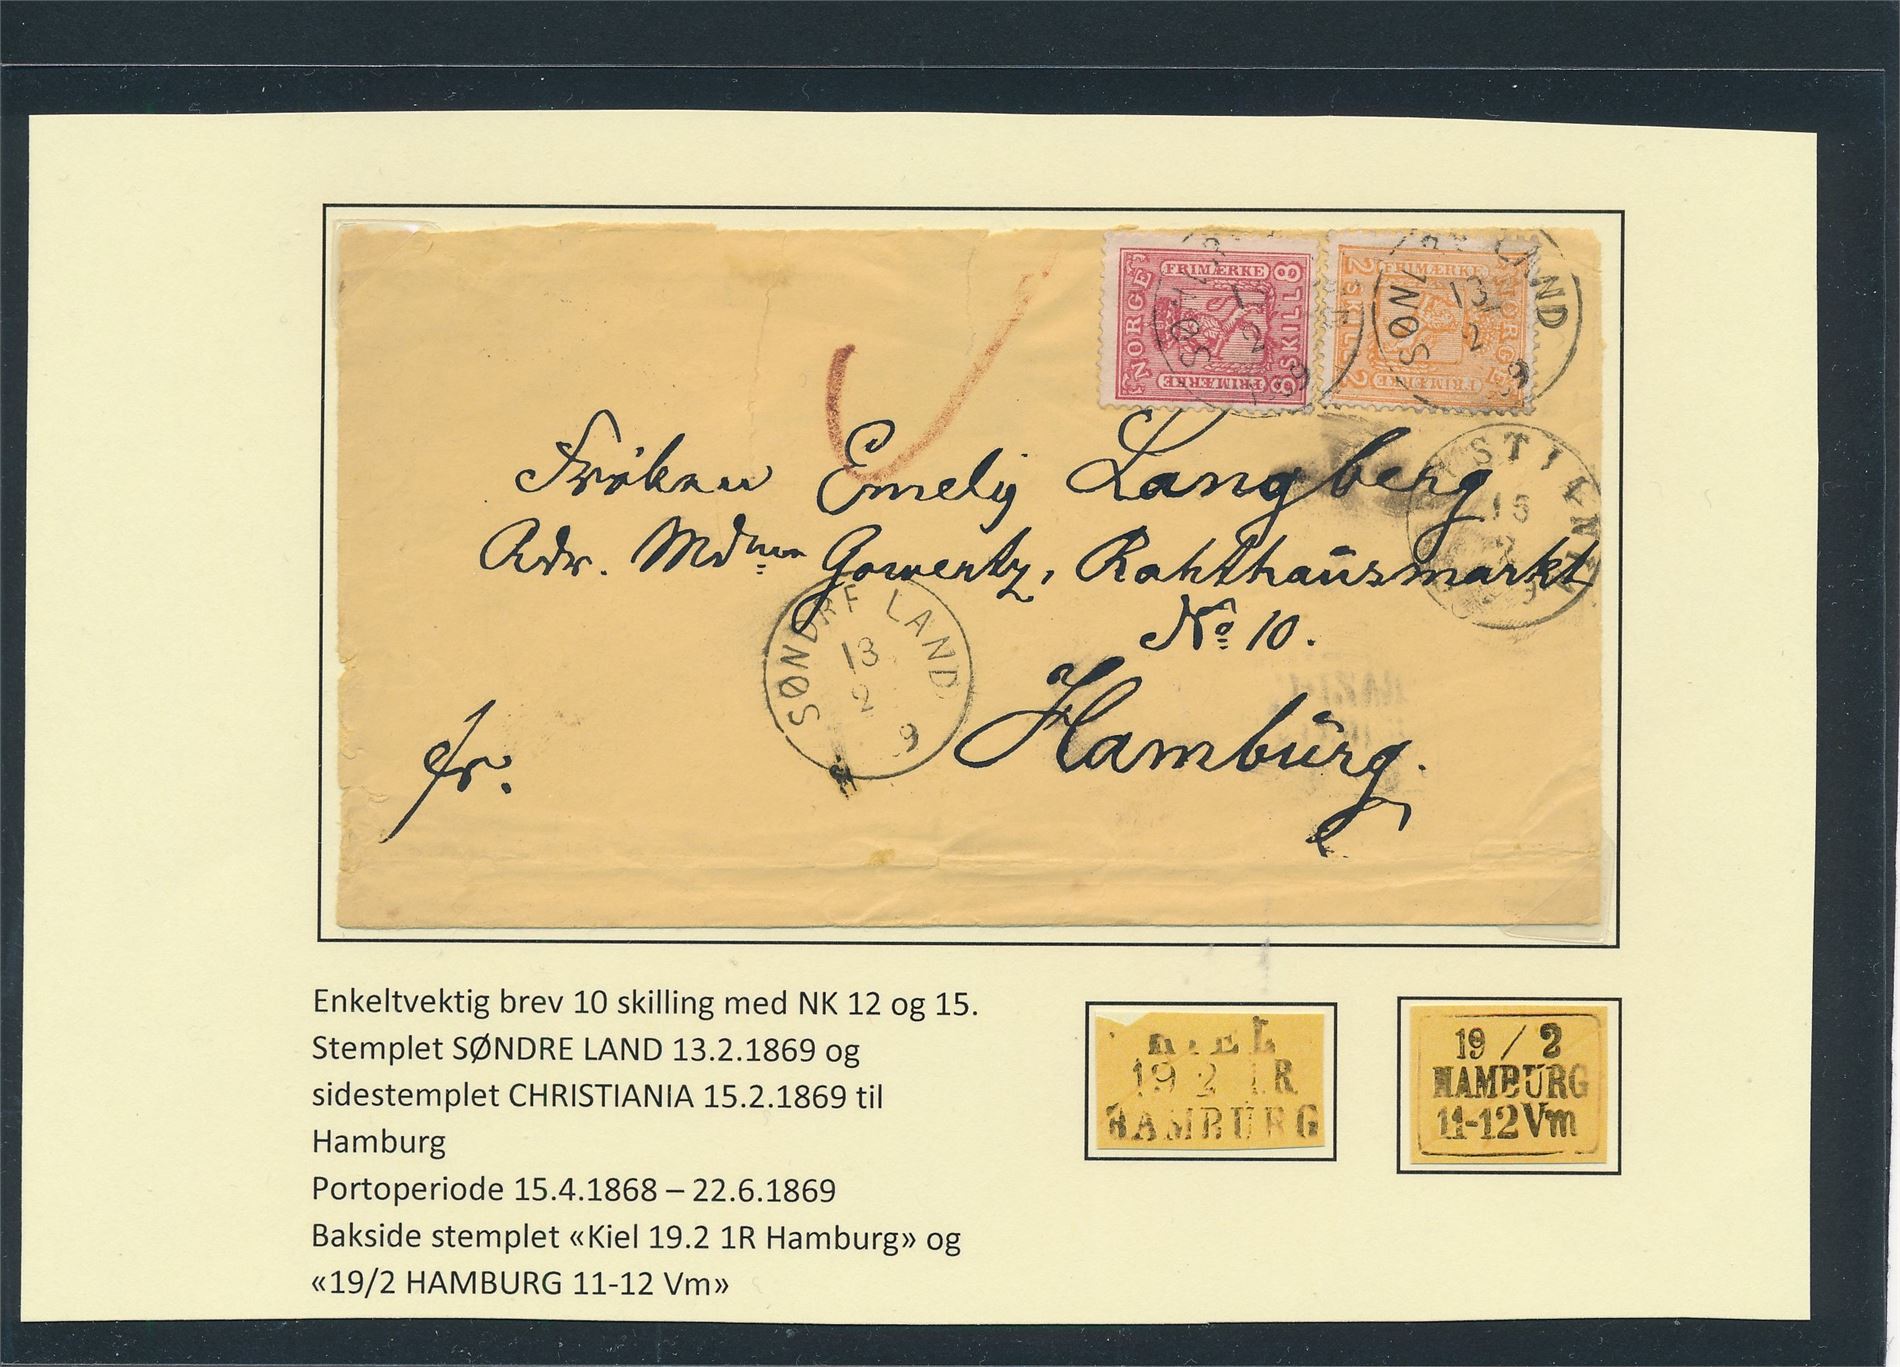 NORGE FRIMÆRKE 8 SKILL 8 FRIMÆRKE
2 SKILL 2 FRIMÆRKE NORGE FRIMÆRKE
SØNDRE LAND
13
2
9
Frøken Emely Langberg
Adr. Mdme Gowertz, Rahthausmarkt
No 10.
Hamburg.
fr.
SØNDRE LAND
13
2
9
Enkeltvektig brev 10 skilling med NK 12 og 15.
Stemplet SØNDRE LAND 13.2.1869 og
sidestemplet CHRISTIANIA 15.2.1869 til
Hamburg
Portoperiode 15.4.1868 – 22.6.1869
Bakside stemplet «Kiel 19.2 1R Hamburg» og
«19/2 HAMBURG 11-12 Vm»
KIEL
19 2 1R
HAMBURG
19 / 2
HAMBURG
11-12 Vm